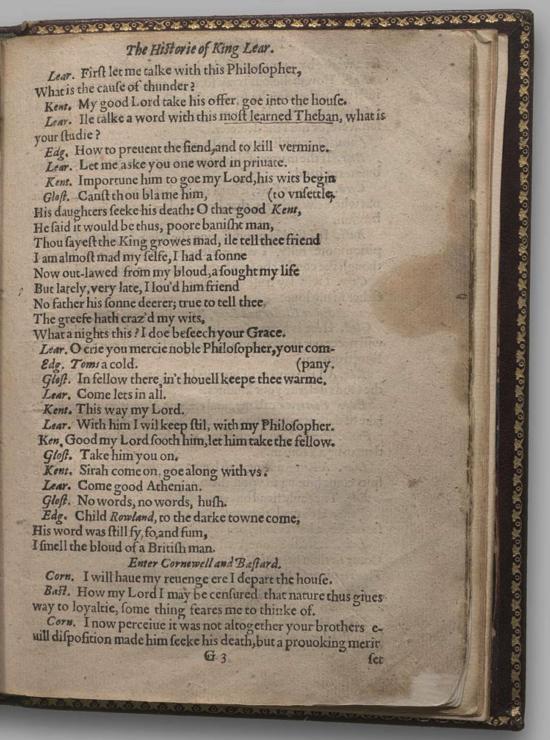 The Hiſtorie of King Lear.
Lear. Firſt let me talke with this Philoſopher,
What is the cauſe of thunder?
Kent. My good Lord take his offer, goe into the houſe.
Lear. Ile talke a word with this moſt learned Theban, what is
your ſtudie?
Edg. How to preuent the fiend, and to kill vermine.
Lear. Let me aske you one word in priuate.
Kent. Importune him to goe my Lord, his wits begin
Gloſt. Canſt thou blame him, (to vnſettle,
His daughters ſeeke his death: O that good Kent,
He ſaid it would be thus, poore baniſht man,
Thou ſayeſt the King growes mad, ile tell thee friend
I am almoſt mad my ſelfe, I had a ſonne
Now out-lawed from my bloud, a ſought my life
But lately, very late, I lou'd him friend
No father his ſonne deerer; true to tell thee,
The greefe hath craz'd my wits,
What a nights this? I doe beſeech your Grace.
Lear. O crie you mercie noble Philoſopher, your com-
Edg. Toms a cold. (pany.
Gloſt. In fellow there, in't houell keepe thee warme.
Lear. Come lets in all.
Kent. This way my Lord.
Lear. With him I wil keep ſtil, with my Philoſopher.
Ken. Good my Lord ſooth him, let him take the fellow.
Gloſt. Take him you on.
Kent. Sirah come on, goe along with vs?
Lear. Come good Athenian.
Gloſt. No words, no words, huſh.
Edg. Child Rowland, to the darke towne come,
His word was ſtill fy, fo, and fum,
I ſmell the bloud of a Britiſh man.
Enter Cornewell and Baſtard.
Corn. I will haue my reuenge ere I depart the houſe.
Baſt. How my Lord I may be cenſured that nature thus giues
way to loyaltie, ſome thing feares me to thinke of.
Corn. I now perceiue it was not altogether your brothers e-
uill diſpoſition made him ſeeke his death, but a prouoking merit
G 3 ſet